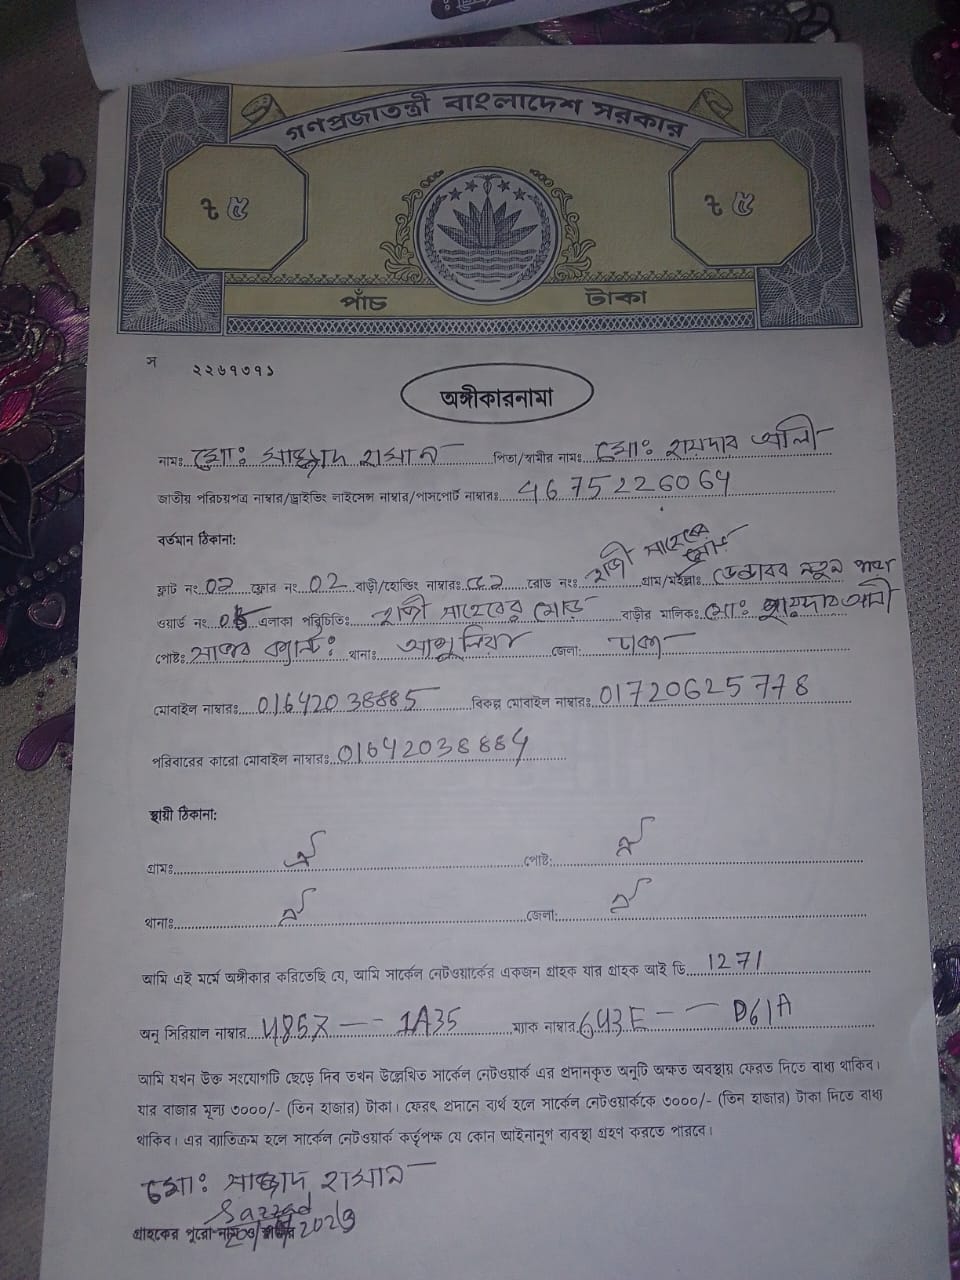 গণপ্রজাতন্ত্রী বাংলাদেশ সরকার
৳ ৫ ৳ ৫
পাঁচ টাকা
স ২২৬৭৩৭১
অঙ্গীকারনামা
নামঃ মোঃ সাজ্জাদ হাসান পিতা/স্বামীর নামঃ মোঃ হায়দার আলী
জাতীয় পরিচয়পত্র নাম্বার/ড্রাইভিং লাইসেন্স নাম্বার/পাসপোর্ট নাম্বারঃ 4675226064
বর্তমান ঠিকানা:
ফ্লাট নং 02 ফ্লোর নং 02 বাড়ী/হোল্ডিং নাম্বারঃ রোড নং: হাজী সাহেবের মোড় গ্রাম/মহল্লাঃ ডেন্ডাবর নতুন পাড়া
ওয়ার্ড নং এলাকা পরিচিতিঃ হাজী সাহেবের মোড় বাড়ীর মালিকঃ মোঃ হায়দার আলী
পোষ্টঃ সাভার ক্যান্টঃ থানাঃ আশুলিয়া জেলা: ঢাকা
মোবাইল নাম্বারঃ 01642038885 বিকল্প মোবাইল নাম্বারঃ 01720625778
পরিবারের কারো মোবাইল নাম্বারঃ 01642038884
স্থায়ী ঠিকানা:
গ্রামঃ ঐ পোষ্ট: ঐ
থানাঃ ঐ জেলা: ঐ
আমি এই মর্মে অঙ্গীকার করিতেছি যে, আমি সার্কেল নেটওয়ার্কের একজন গ্রাহক যার গ্রাহক আই ডি 1271
অনু সিরিয়াল নাম্বার 485X -- 1A35 ম্যাক নাম্বার 643E -- D61A
আমি যখন উক্ত সংযোগটি ছেড়ে দিব তখন উল্লেখিত সার্কেল নেটওয়ার্ক এর প্রদানকৃত অনুটি অক্ষত অবস্থায় ফেরত দিতে বাধ্য থাকিব।
যার বাজার মূল্য ৩০০০/- (তিন হাজার) টাকা। ফেরৎ প্রদানে ব্যর্থ হলে সার্কেল নেটওয়ার্ককে ৩০০০/- (তিন হাজার) টাকা দিতে বাধ্য
থাকিব। এর ব্যতিক্রম হলে সার্কেল নেটওয়ার্ক কর্তৃপক্ষ যে কোন আইনানুগ ব্যবস্থা গ্রহণ করতে পারবে।
মোঃ সাজ্জাদ হাসান
Sazzad
গ্রাহকের পুরো নাম